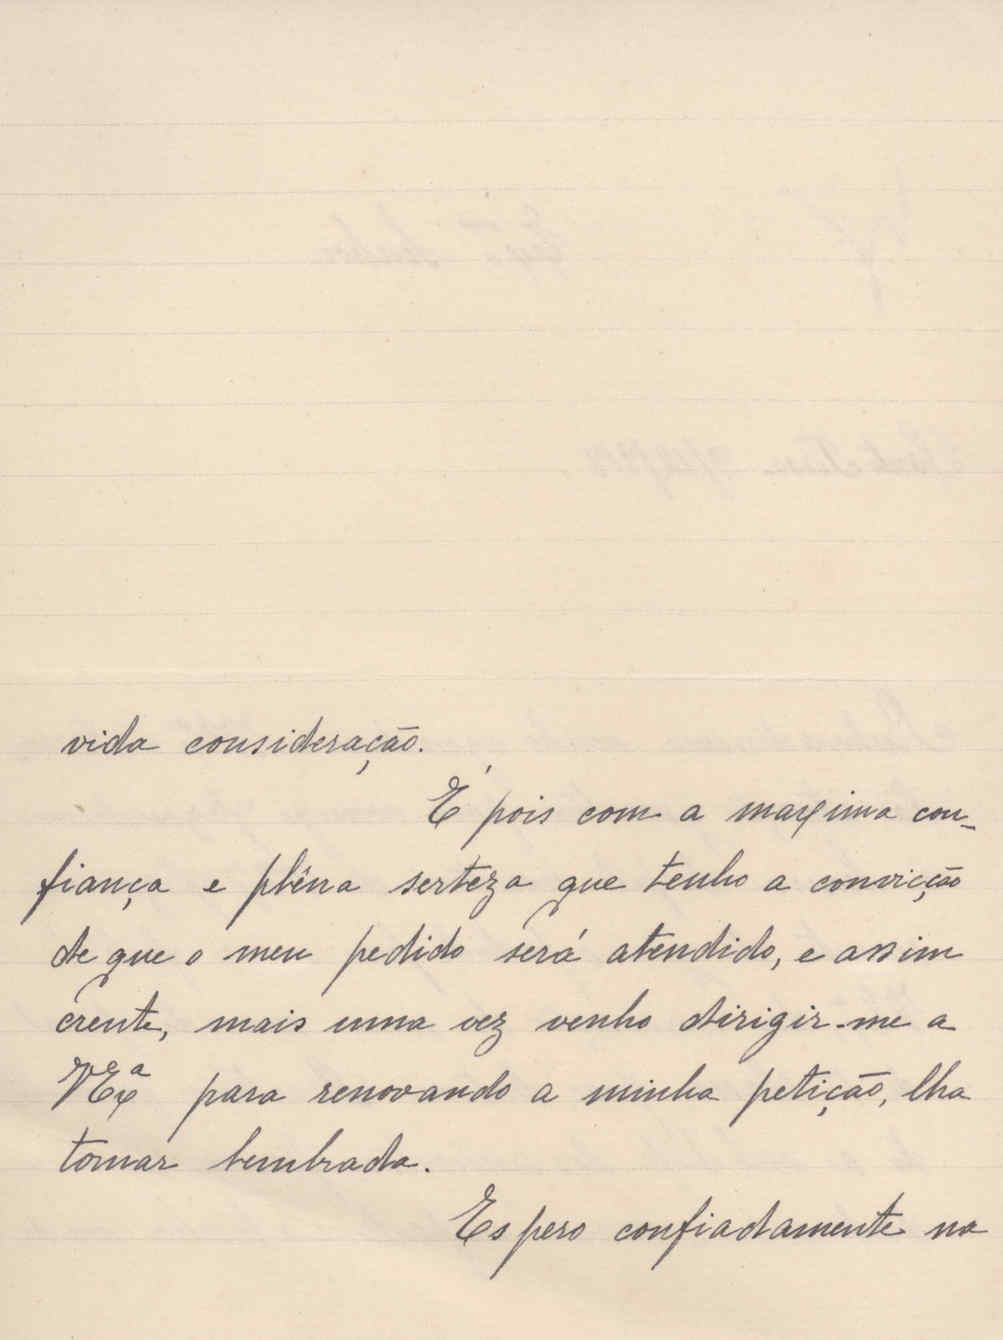 vida consideração.
É pois com a maxima con-
fiança e plêna serteza que tenho a convicção
de que o meu pedido será atendido, e assim
crente, mais uma vez venho dirigir-me a
VExª para renovando a minha petição, lha
tornar lembrada.
Espero confiadamente na